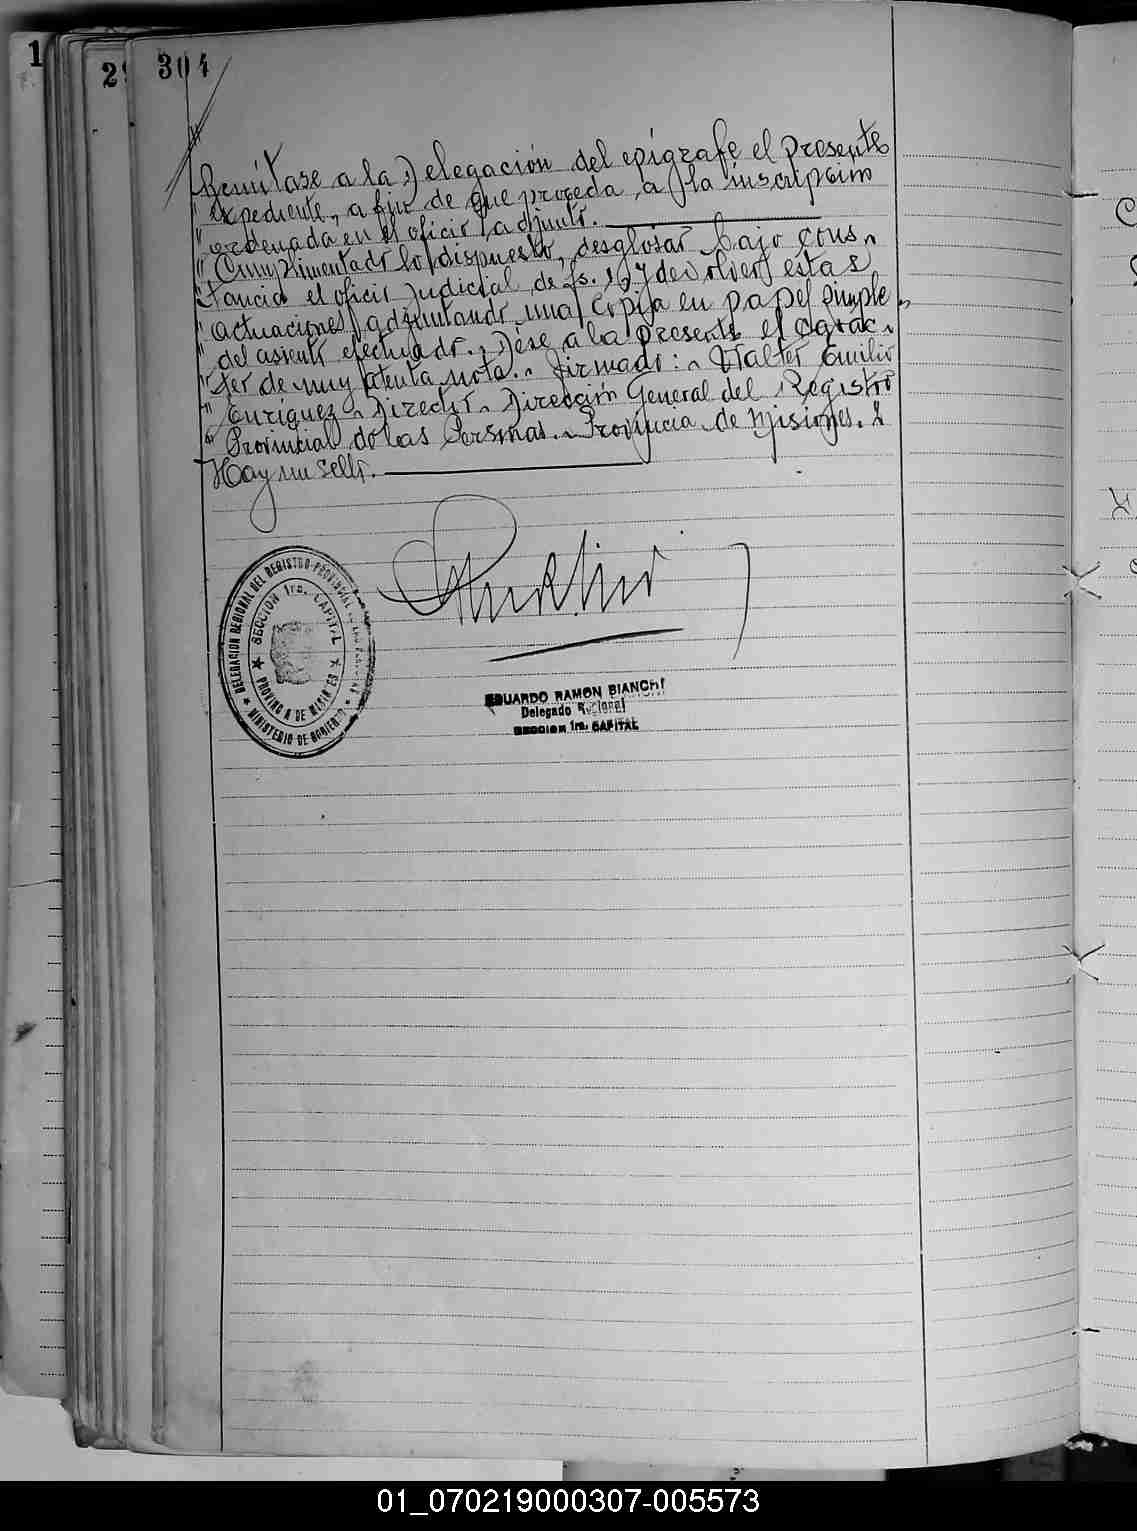 1
29
304
Remítase a la Delegación del epígrafe el presente
" expediente, a fin de que proceda a la inscripción
" ordenada en el oficio adjunto.
" Cumplimentado lo dispuesto, desglosar bajo cons-
" tancia el oficio judicial de fs. 1, y devolver estas
" actuaciones, adjuntando una copia en papel simple
" del asiento efectuado.- Dése a la presente el carác-
" ter de muy atenta nota.- Firmado:- Walter Emilio
" Enríquez - Director - Dirección General del Registro
" Provincial de las Personas.- Provincia de Misiones.-
Hay un sello.
DELEGACION REGIONAL DEL REGISTRO PROVINCIAL DE LAS PERSONAS
SECCION 1ra. CAPITAL
PROVINCIA DE MISIONES
MINISTERIO DE GOBIERNO
EDUARDO RAMON BIANCHI
Delegado Regional
SECCION 1ra. CAPITAL
01_070219000307-005573